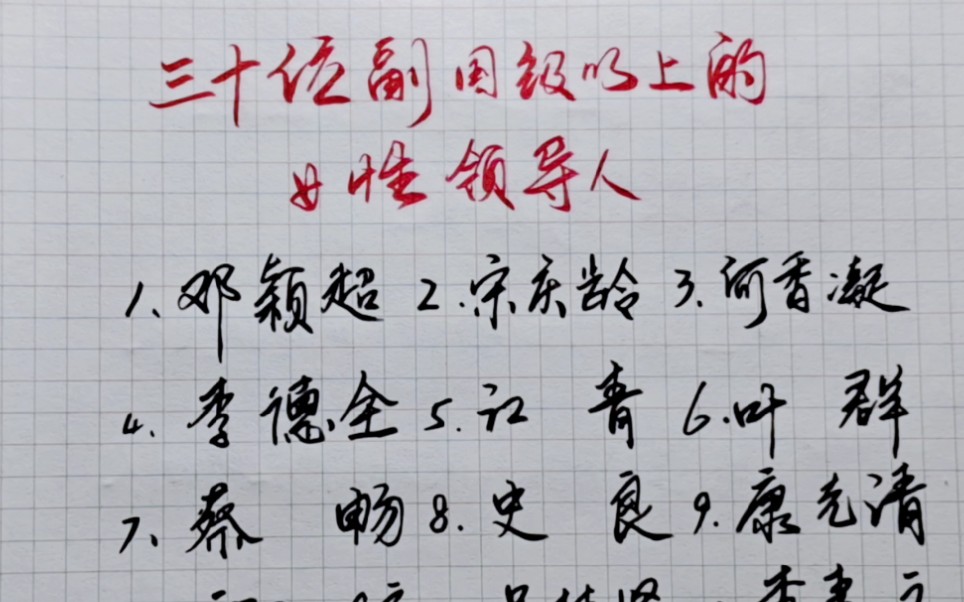 三十位副国级以上的
女性领导人
1、邓颖超 2、宋庆龄 3、何香凝
4、李德全 5、江青 6、叶群
7、蔡畅 8、史良 9、康克清